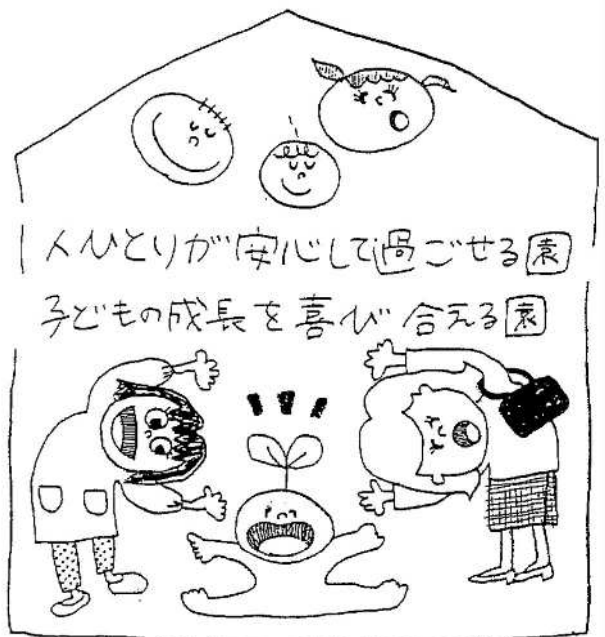 1人ひとりが安心して過ごせる園
子どもの成長を喜び合える園